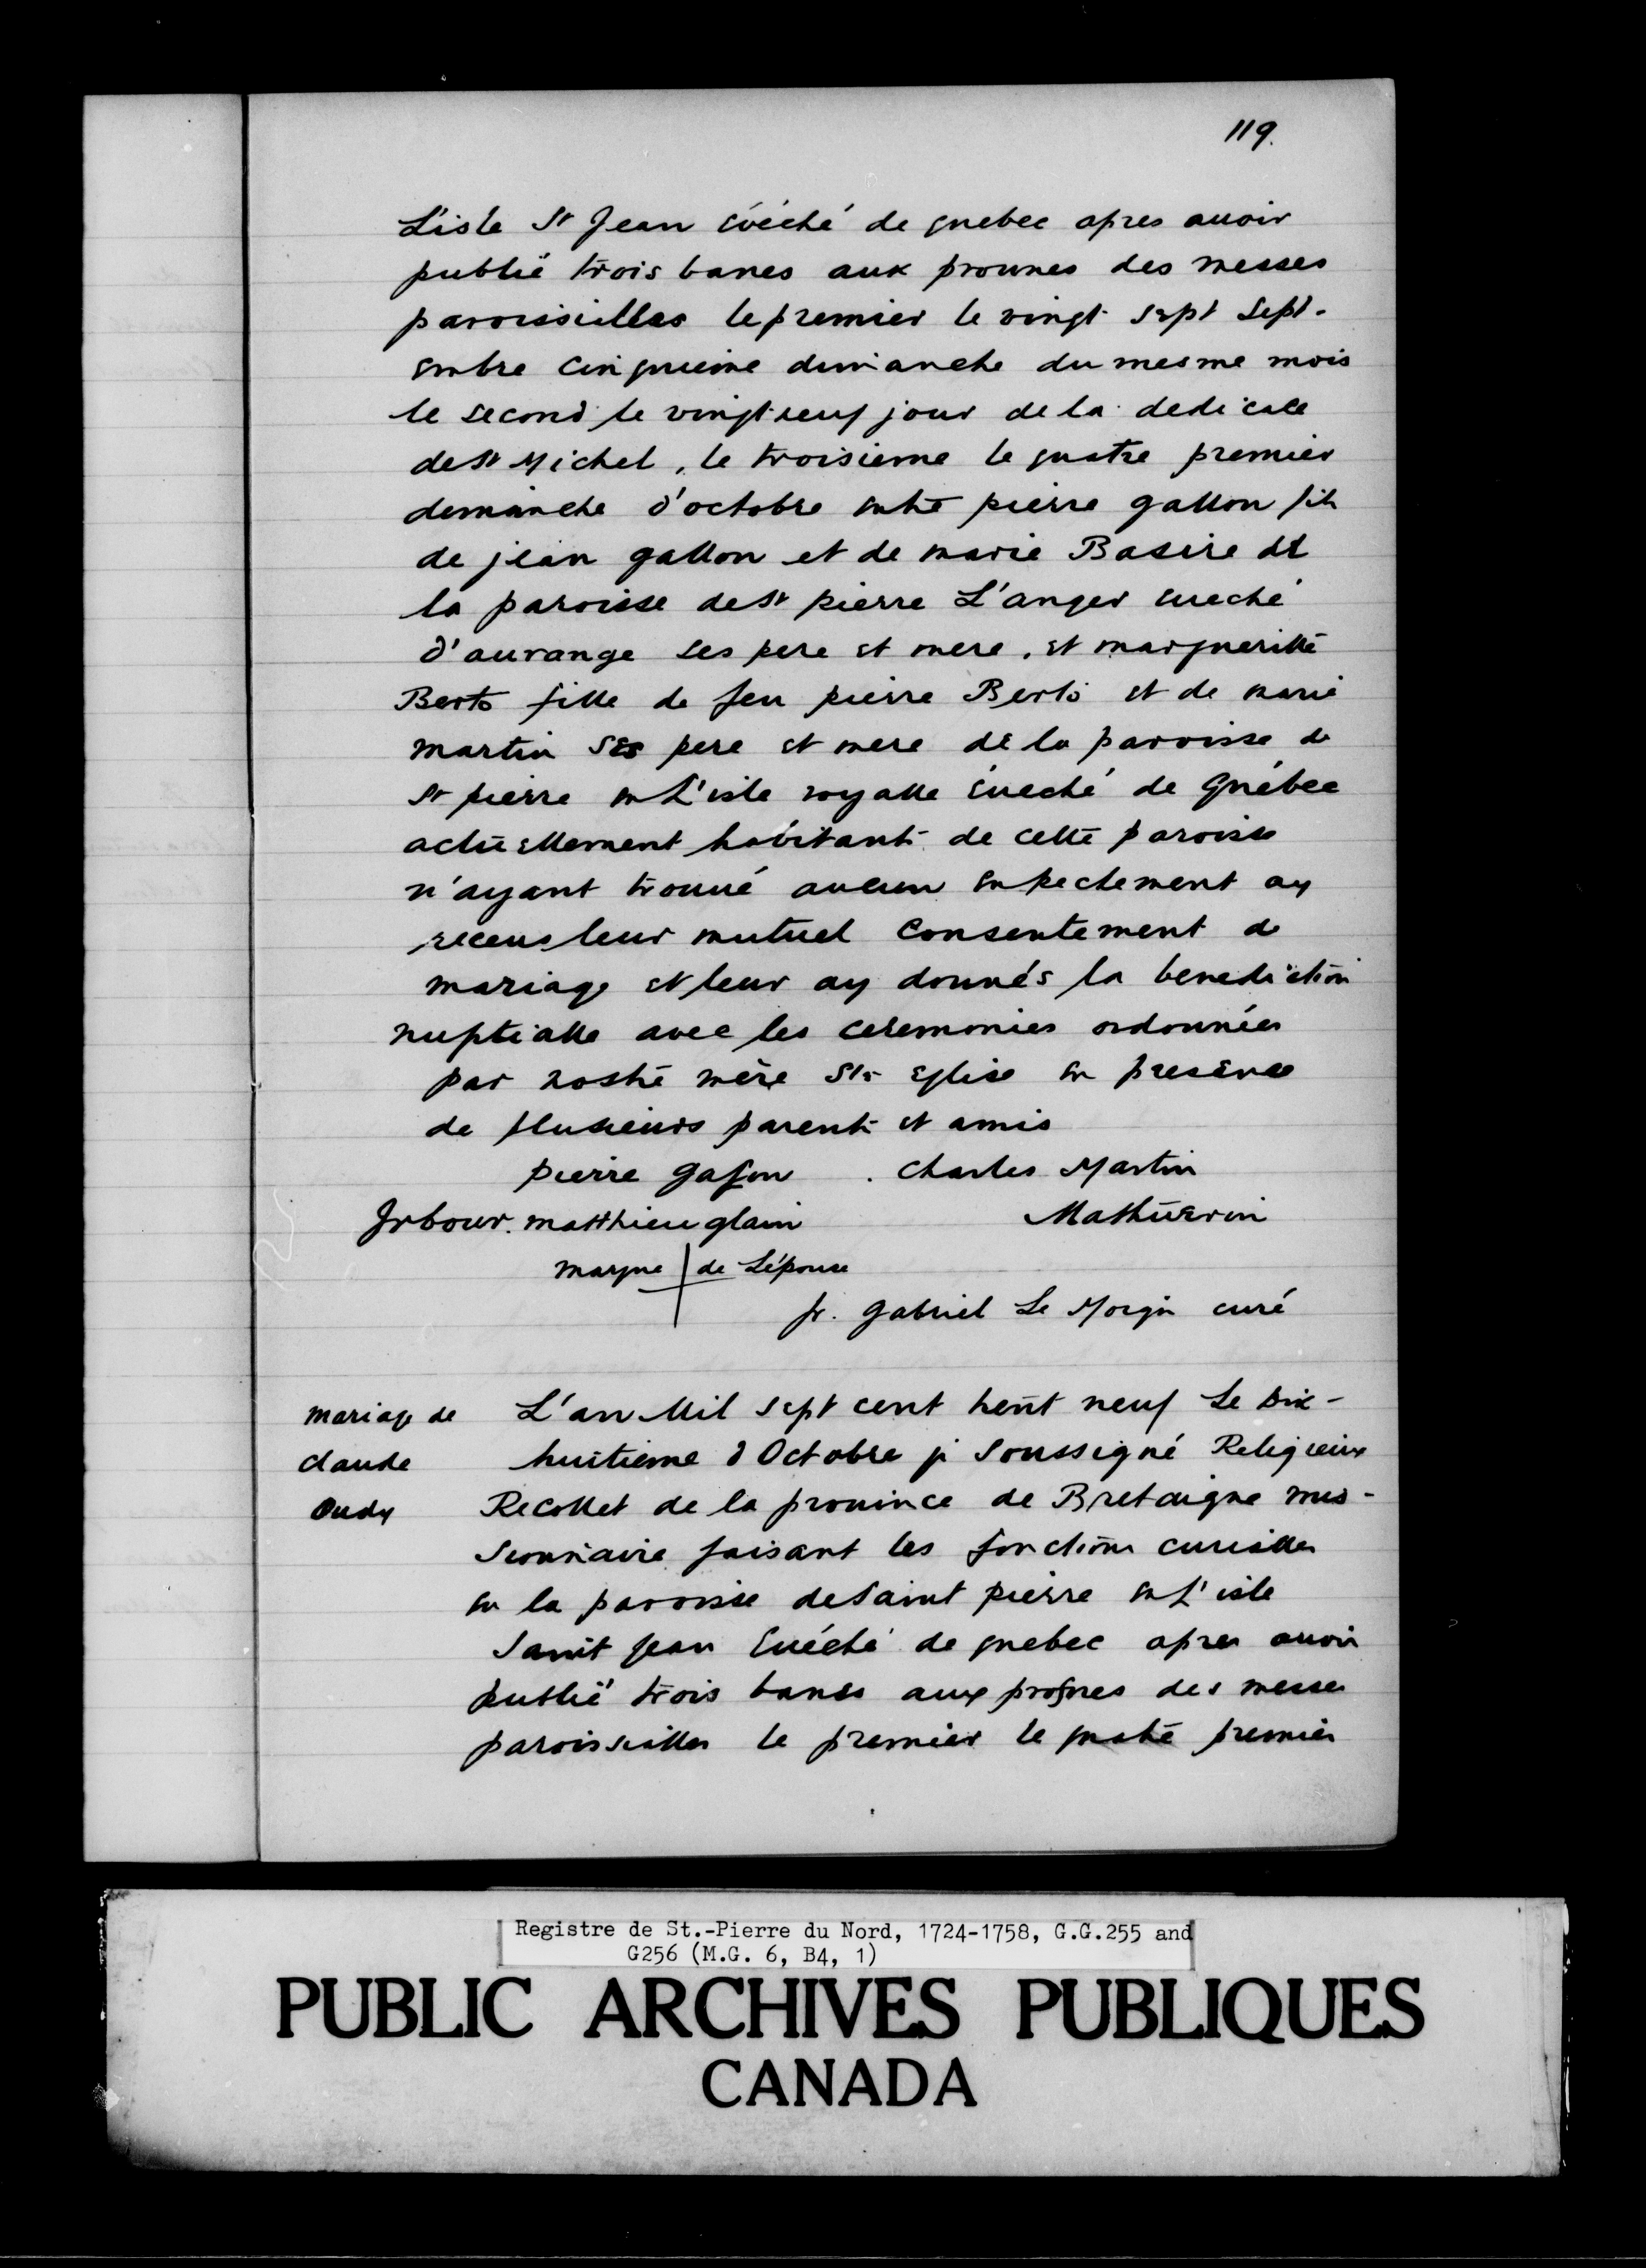 119.
L'isle St Jean évêché de quebec apres auoir
publié trois banes aux prounes des messes
paroissielles le premier le vingt sept sept-
embre cinquieme dimanche du mesme mois
le second le vingt neuf jour de la dedicace
de St Michel, le troisieme le quatre premier
demanche d'octobre entre pierre gallon fils
de jean gallon et de marie Basire de
la paroisse de St pierre L'anger eueché
d'aurange ses pere et mere, et margueritte
Berto fille de feu pierre Berto et de marie
martin ses pere et mere de la paroisse de
St pierre en L'isle royalle éueché de Québec
actuellement habitant de cette paroisse
n'ayant trouué aucun enpechement ay
receus leur mutuel consentement de
mariage et leur ay donnés la benediction
nuptialle avec les ceremonies ordonnées
par nostre mère Ste eglise en presence
de plusieurs parents et amis
pierre gason . Charles Martin
Jrbour. matthieu glain Mathuerin
marque de L'épouse
fr. gabriel Le Moign curé
mariage de L'an Mil sept cent trent neuf Le Dix-
claude huitieme d Octobre je Soussigné Religieux
Oudy Recollet de la prouince de Bretaigne mis-
sionnaire faisant les fonctions curialles
en la paroisse de Saint pierre en L'isle
Saint Jean Euéché de quebec apres auoir
publié trois banes aux prosnes des messes
paroissialles le premier le quatre premier
Registre de St.-Pierre du Nord, 1724-1758, G.G.255 and
G256 (M.G. 6, B4, 1)
PUBLIC ARCHIVES PUBLIQUES
CANADA